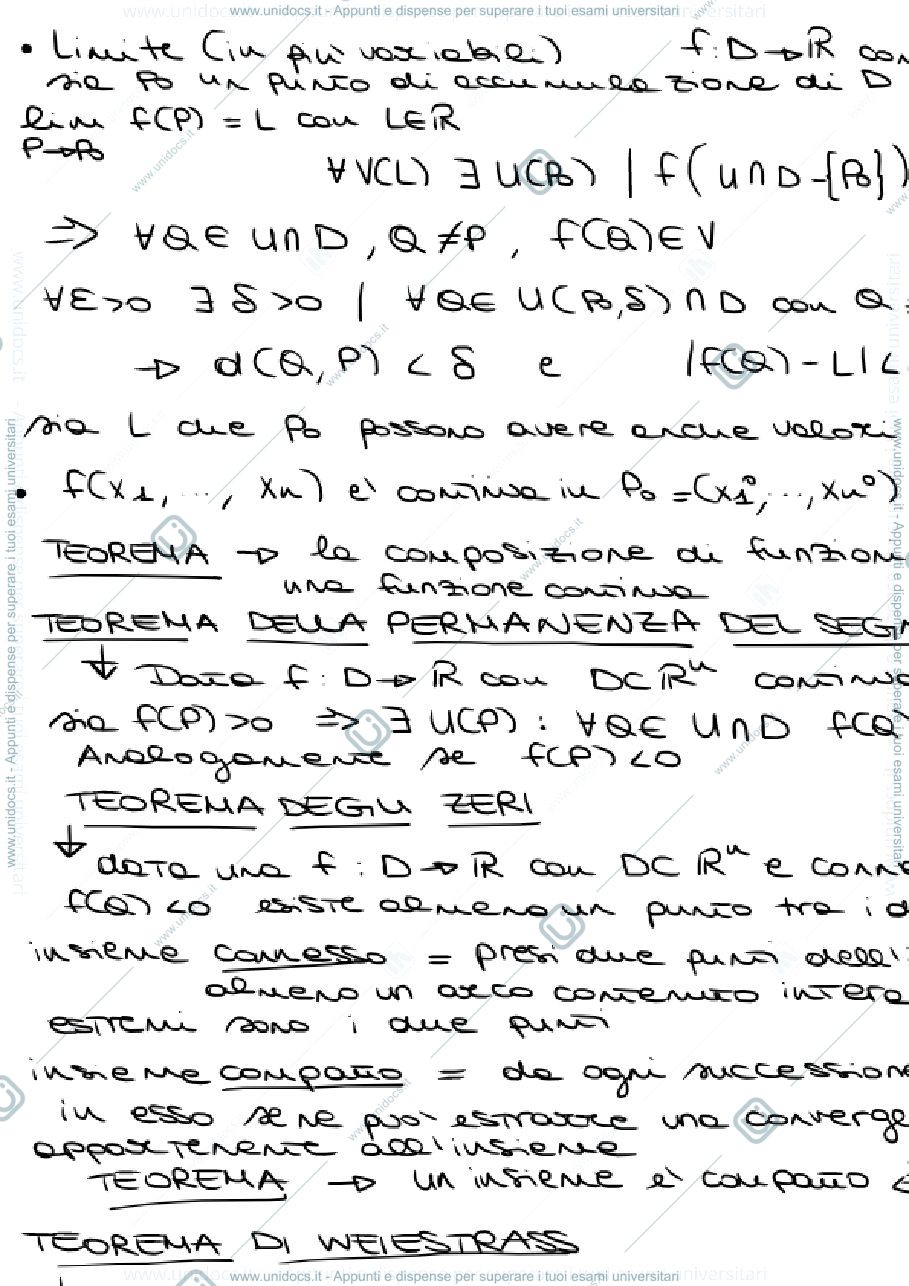 www.unidocs.it - Appunti e dispense per superare i tuoi esami universitari
• Limite (in più variabili) f: D→ℝ con
sia P₀ un punto di accumulazione di D
lim f(P) = L con L∈ℝ
P→P₀
∀V(L) ∃ U(P₀) | f(U∩D-{P₀})
⇒ ∀Q∈ U∩D, Q≠P, f(Q)∈V
∀ε>0 ∃ δ>0 | ∀Q∈ U(P₀,δ)∩D con Q
→ d(Q,P) < δ e |f(Q)-L|<
sia L che P₀ possono avere anche valori
• f(x₁, ..., xₙ) è continua in P₀=(x₁°, ..., xₙ°)
TEOREMA → la composizione di funzioni
una funzione continua
TEOREMA DELLA PERMANENZA DEL SEG
↓ Data f: D→ℝ con D⊂ℝⁿ continua
sia f(P)>0 ⇒ ∃ U(P): ∀Q∈ U∩D f(Q)
Analogamente se f(P)<0
TEOREMA DEGLI ZERI
↓ data una f: D→ℝ con D⊂ℝⁿ e conne
f(Q)<0 esiste almeno un punto tra i d
insieme connesso = presi due punti dell'i
almeno un arco contenuto intera
estremi sono i due punti
insieme compatto = da ogni successione
in esso se ne può estrarre una converge
appartenente all'insieme
TEOREMA → un insieme è compatto <
TEOREMA DI WEIESTRASS
www.unidocs.it - Appunti e dispense per superare i tuoi esami universitari